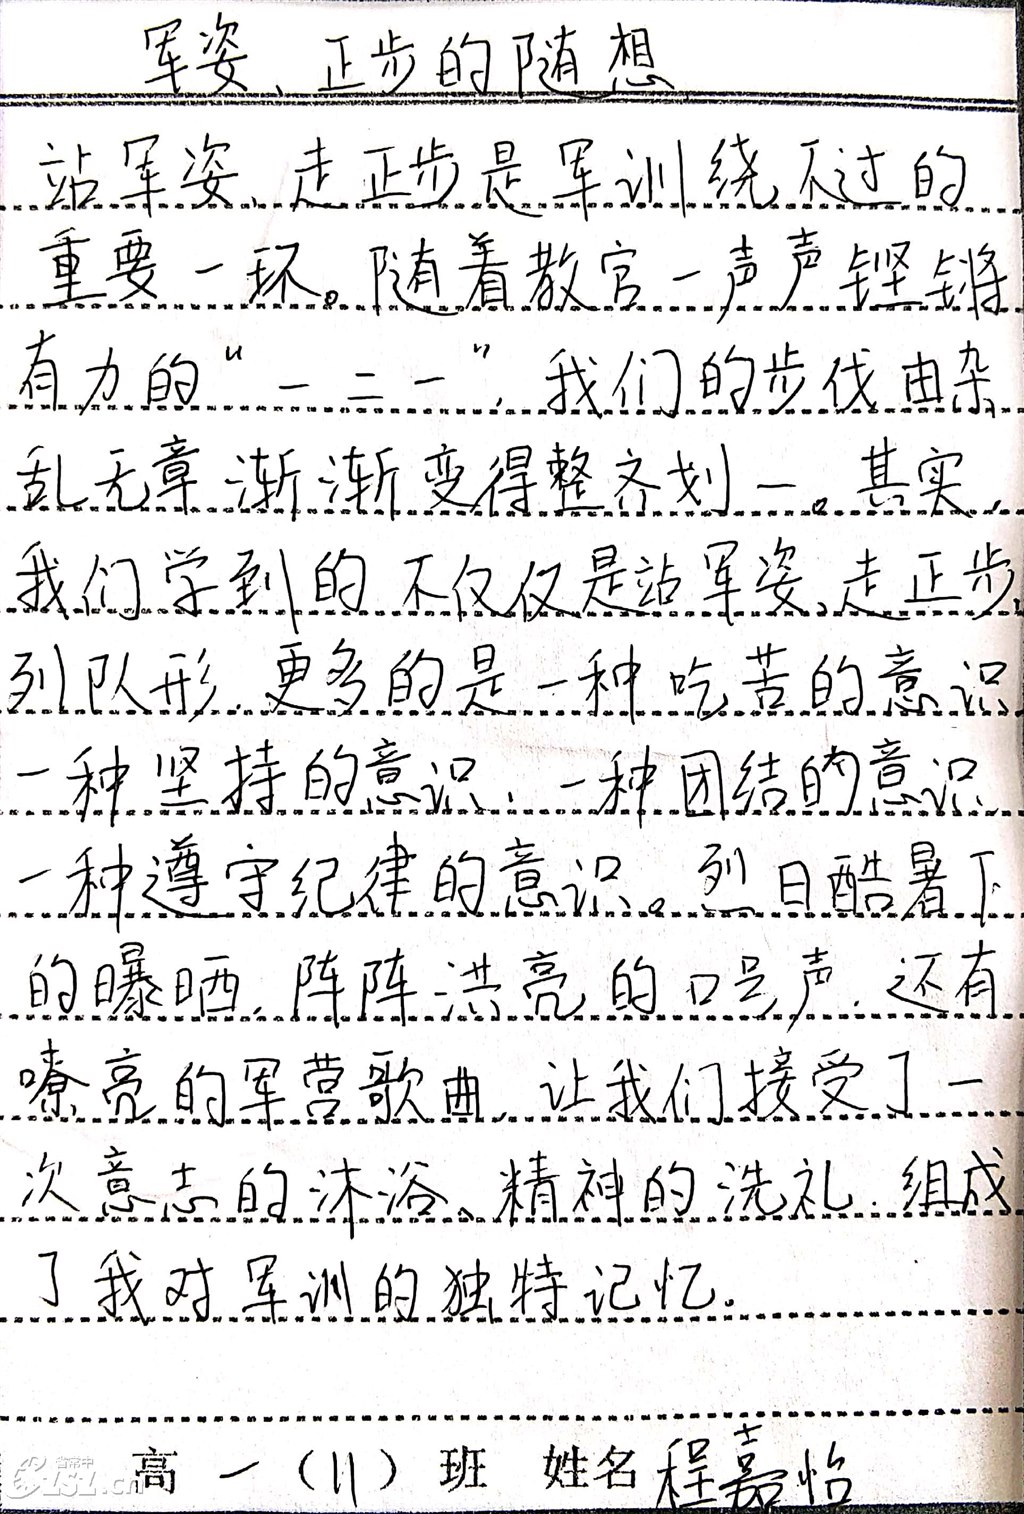 军姿、正步的随想
站军姿、走正步是军训绕不过的
重要一环。随着教官一声声铿锵
有力的“一二一”,我们的步伐由杂
乱无章渐渐变得整齐划一。其实,
我们学到的不仅仅是站军姿、走正步、
列队形,更多的是一种吃苦的意识
一种坚持的意识,一种团结的意识
一种遵守纪律的意识。烈日酷暑下
的曝晒,阵阵洪亮的口号声,还有
嘹亮的军营歌曲,让我们接受了一
次意志的沐浴、精神的洗礼,组成
了我对军训的独特记忆。
高一(11)班 姓名 程嘉怡
省常中